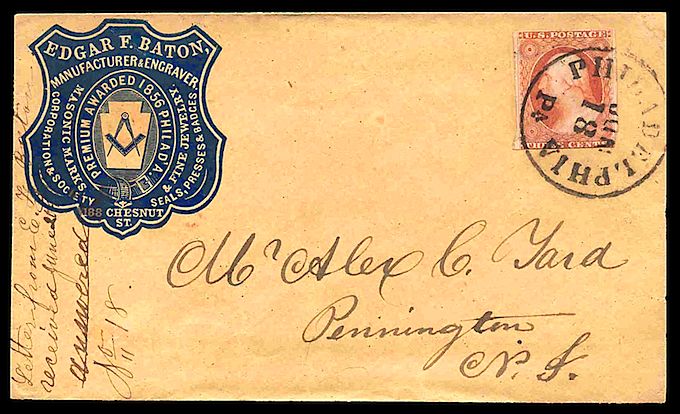 EDGAR F. BATON,
MANUFACTURER & ENGRAVER
PREMIUM AWARDED 1856 PHILADA.
MASONIC MARKS,
CORPORATION & SOCIETY
& FINE JEWELRY.
SEALS, PRESSES & BADGES.
188 CHESNUT
ST.
U.S. POSTAGE
THREE CENTS
PHILADELPHIA
Pa
JUN
18
Mr Alex C. Yard
Pennington
N. J.
Letter from E. F. Baton
received June
answered
" 18